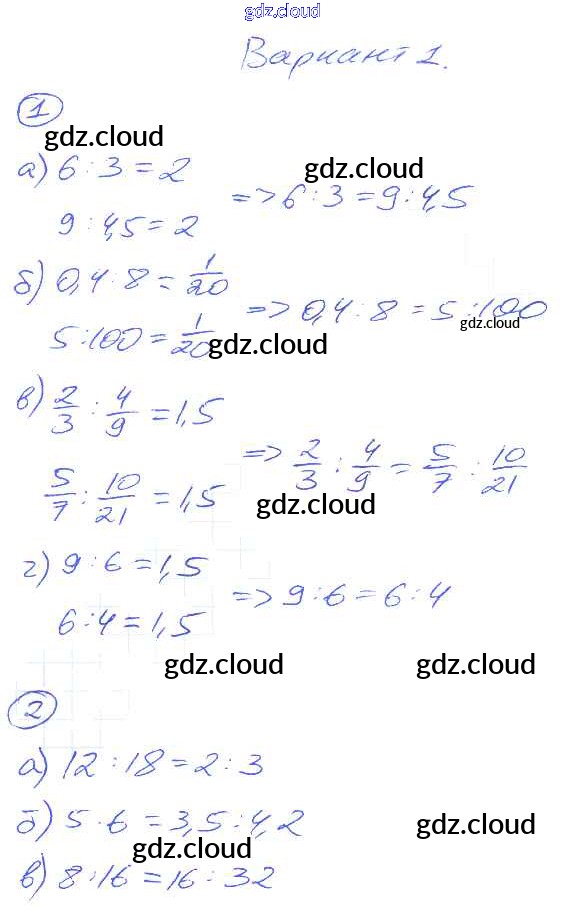 gdz.cloud
Вариант 1.
1
gdz.cloud
а) 6 : 3 = 2
gdz.cloud
=> 6 : 3 = 9 : 4,5
9 : 4,5 = 2
б) 0,4 : 8 = 1/20
=> 0,4 : 8 = 5 : 100
gdz.cloud
5 : 100 = 1/20
gdz.cloud
в) 2/3 : 4/9 = 1,5
=> 2/3 : 4/9 = 5/7 : 10/21
5/7 : 10/21 = 1,5
gdz.cloud
г) 9 : 6 = 1,5
=> 9 : 6 = 6 : 4
6 : 4 = 1,5
gdz.cloud gdz.cloud
2
а) 12 : 18 = 2 : 3
б) 5 : 6 = 3,5 : 4,2
gdz.cloud
gdz.cloud
в) 8 : 16 = 16 : 32